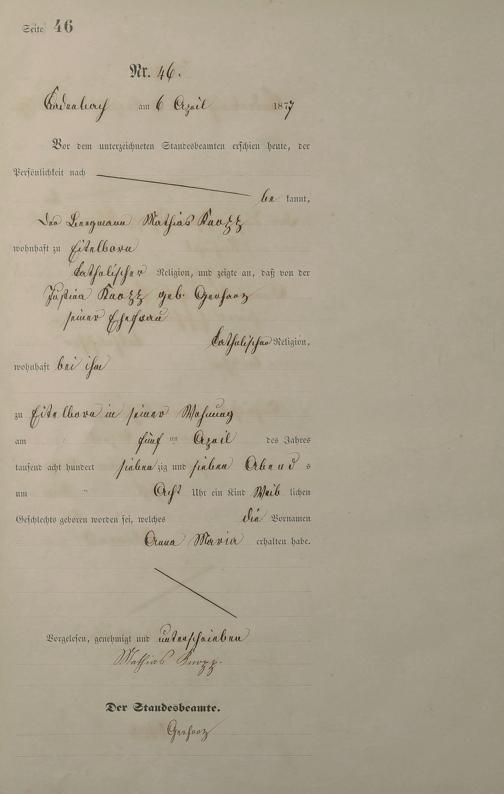 Seite 46
Nr. 46.
Kadenbach am 6 April 1877
Vor dem unterzeichneten Standesbeamten erschien heute, der
Persönlichkeit nach
be kannt,
der Bergmann Mathias Knopp
wohnhaft zu Eitelborn
katholischer Religion, und zeigte an, daß von der
Justina Knopp geb. Gerharz
seiner Ehefrau
katholischer Religion,
wohnhaft bei ihm
zu Eitelborn in seiner Wohnung
am fünf ten April des Jahres
tausend acht hundert sieben zig und sieben Abend s
um Acht Uhr ein Kind Weib lichen
Geschlechts geboren worden sei, welches die Vornamen
Anna Maria erhalten habe.
Vorgelesen, genehmigt und unterschrieben
Mathias Knopp.
Der Standesbeamte.
Gerharz